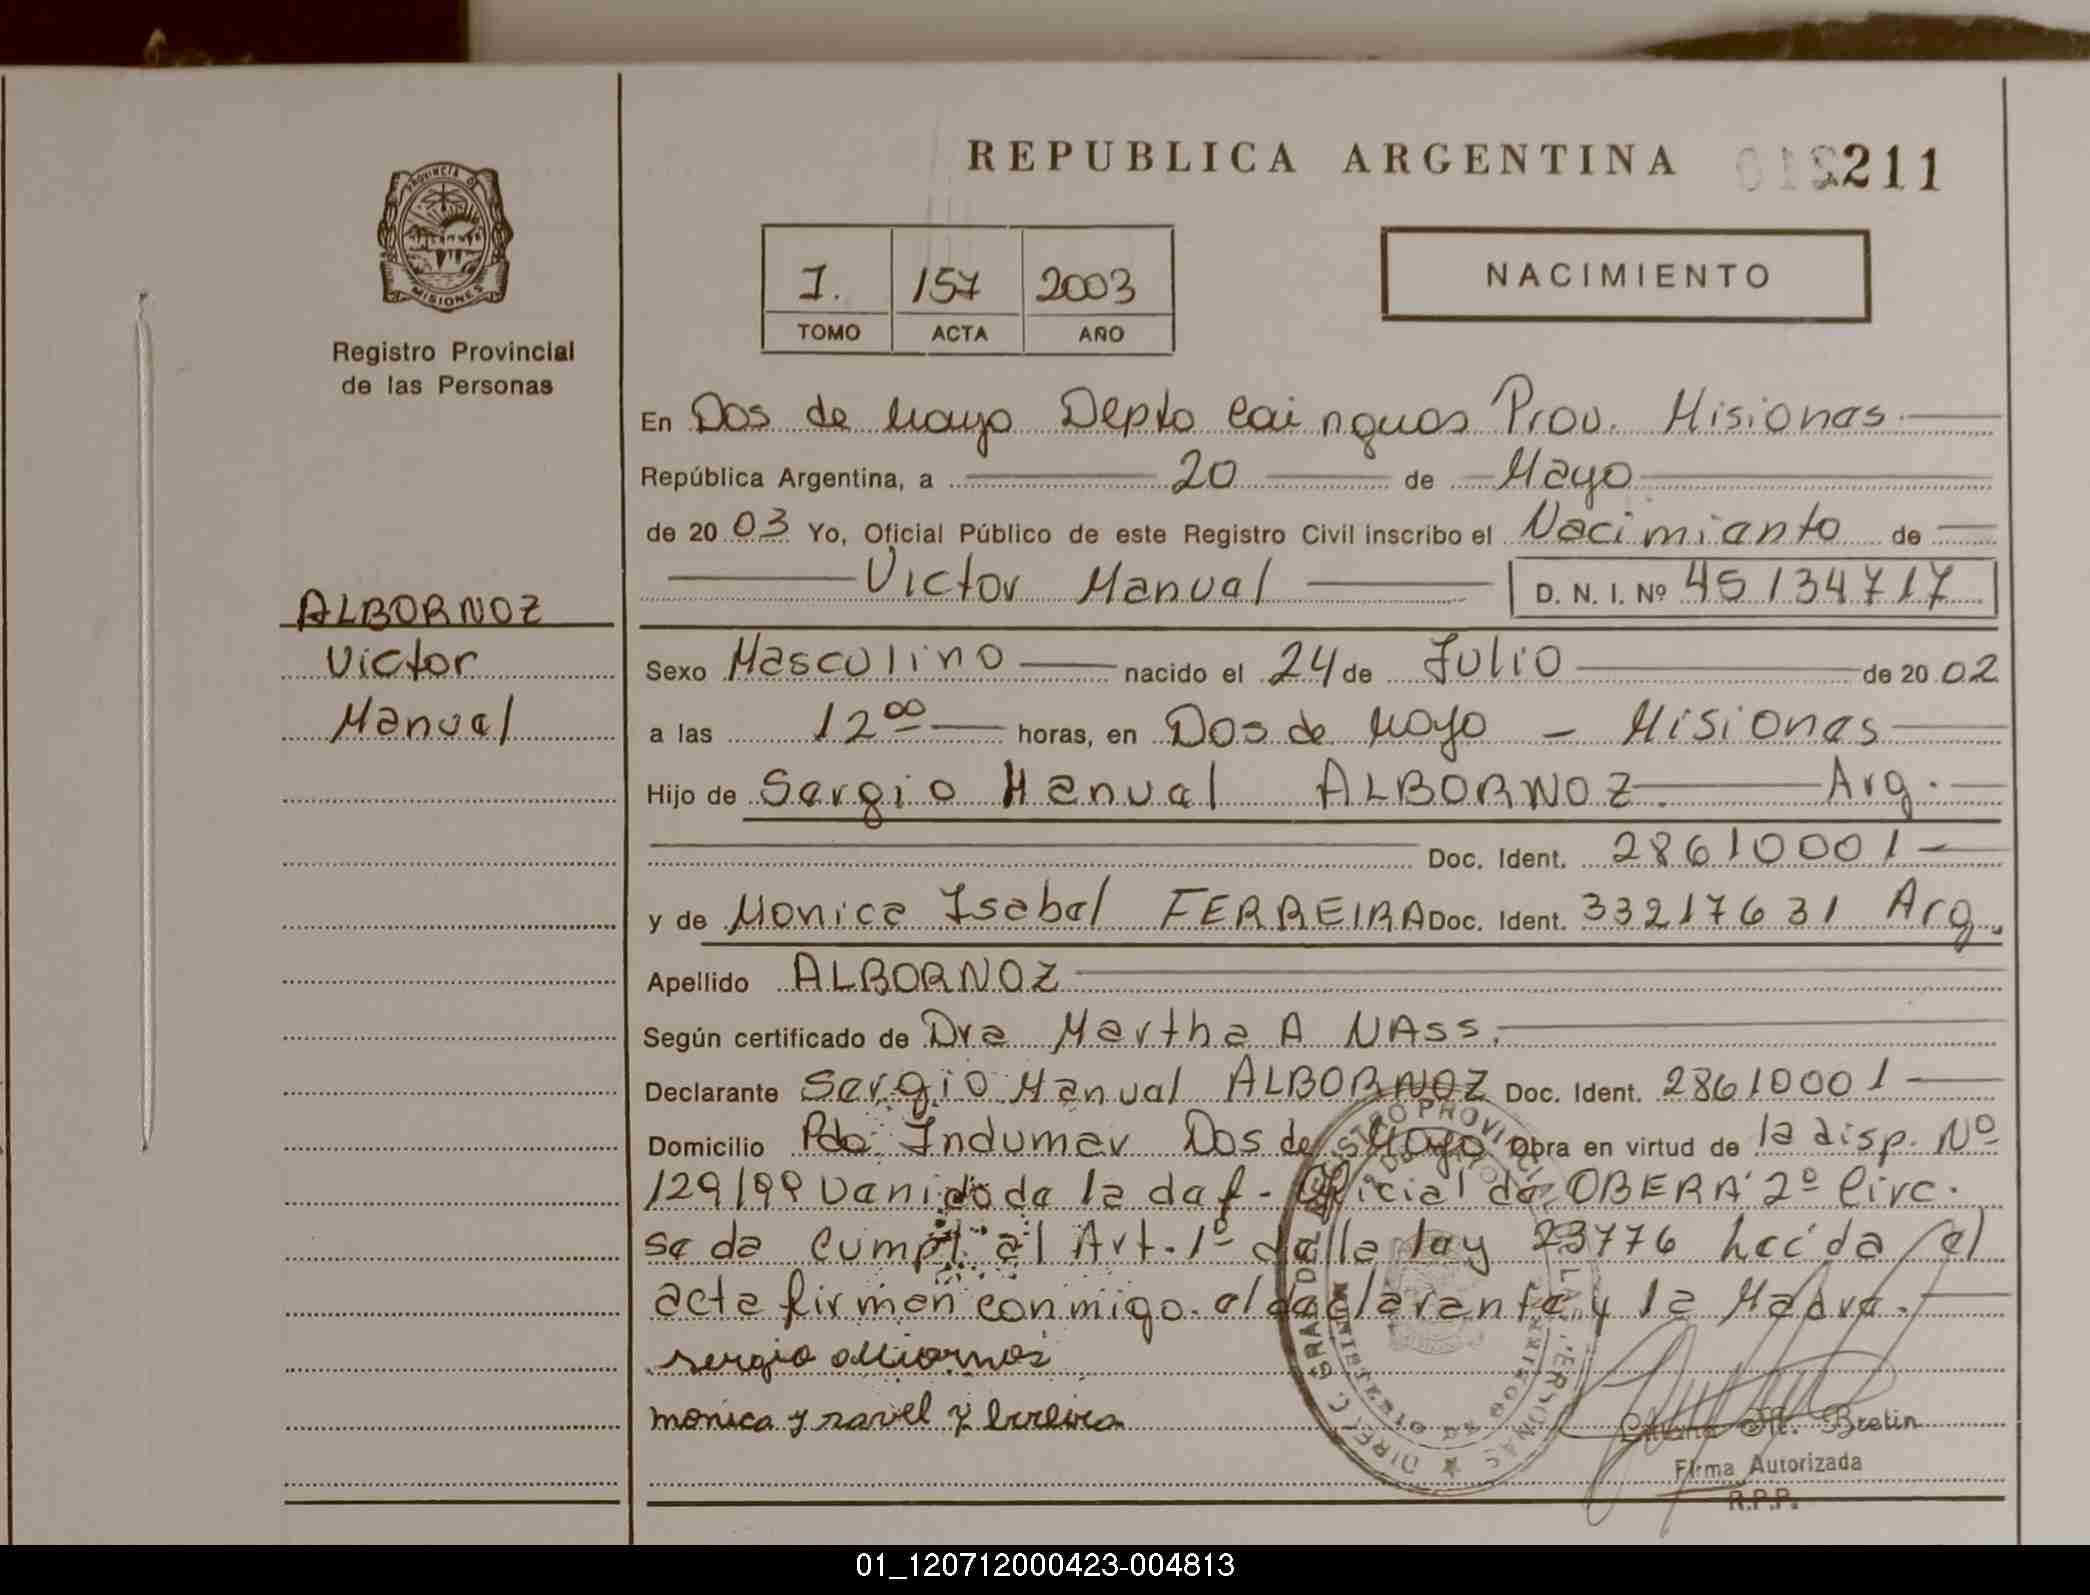 REPUBLICA ARGENTINA 012211
PROVINCIA DE
MISIONES
Registro Provincial
de las Personas
NACIMIENTO
I. 157 2003
TOMO ACTA AÑO
En Dos de Mayo Depto Cainguas Prov. Misiones
República Argentina, a 20 de Mayo
de 2003 Yo, Oficial Público de este Registro Civil inscribo el Nacimiento de
Victor Manuel D. N. I. Nº 45134717
ALBORNOZ
Victor
Manuel
Sexo Masculino nacido el 24 de Julio de 2002
a las 12 00 horas, en Dos de Mayo - Misiones
Hijo de Sergio Manuel ALBORNOZ. Arg.
Doc. Ident. 28610001-
y de Monica Isabel FERREIRA Doc. Ident. 33217631 Arg.
Apellido ALBORNOZ
Según certificado de Dra Martha A NAss.
Declarante Sergio Manuel ALBORNOZ Doc. Ident. 28610001
Domicilio Pdo. Indumar Dos de Mayo Obra en virtud de la disp. Nº
129/99 Venido de la def. Oficial de OBERA 2º Circ.
se da Cumpl. al Art. 1º de la ley 23776 Leida el
acta firman conmigo el declarante y la Madre.
sergio albornoz
monica ysavel ferreira
M. Bretin
Firma Autorizada
R.P.P.
01_120712000423-004813